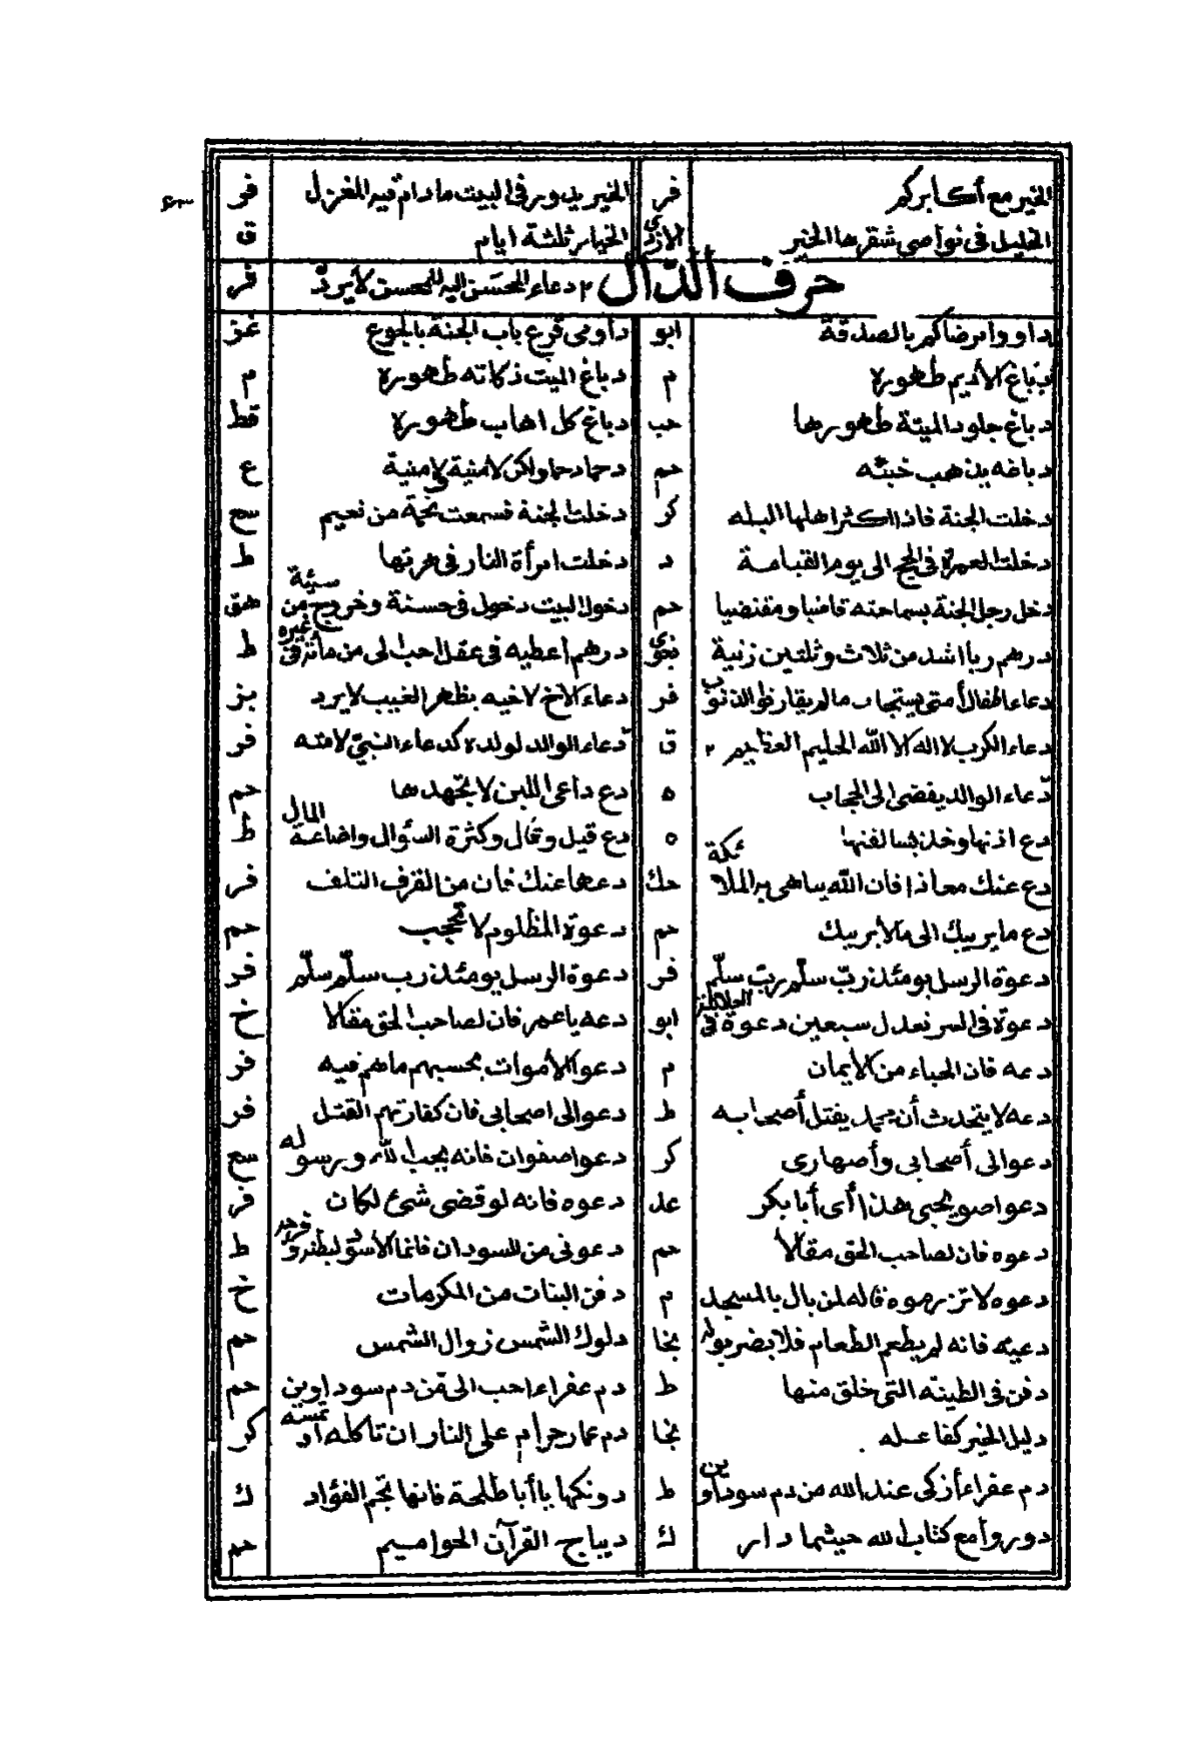 ٦٣
الخير مع أكابركم فر الخير يدور في البيت مادام فيه المغزل فر
الخليل في نواصي شقرها الخير الازدي الخيار ثلثة ايام ق
حرف الدال ٢ دعاء المحسَن اليه للمحسن لا يردّ فر
داووا مرضاكم بالصدقة ابو داومي قرع باب الجنة بالجوع غز
دباغ الأديم طهوره م دباغ الميت ذكاته طهوره م
دباغ جلود الميتة طهورها حب دباغ كل اهاب طهوره قط
دباغه يذهب خبثه حم ع
دخلت الجنة فاذا اكثر اهلها البله كر دخلت الجنة فسمعت نحمة من نعيم سع
دخلت العمرة في الحج الى يوم القيامة د دخلت امرأة النار في هرتها ط
دخل رجل الجنة بسماحته قاضيا ومقتضيا حم دخول البيت دخول في حسنة وخروج من سيئة هق
درهم ربا اشد من ثلاث وثلثين زنية بغوي درهم أعطيه في عقل احب الي من مأة في غيره ط
دعاء اطفال أمتي يستجاب ما لم يقارفوا الذنوب فر دعاء الاخ لاخيه بظهر الغيب لا يرد بز
دعاء الكرب لا اله الا الله الحليم العظيم ٢ ق دعاء الوالد لولده كدعاء النبيّ لامته فر
دعاء الوالد يفضي الى الحجاب ه دع داعي اللبن لا تجهدها حم
دع اذنها وخذ بسالفتها ه دع قيل وقال وكثرة السؤال واضاعة المال ط
دع عنك معاذا فان الله يباهي به الملائكة حك دعها عنك فان من القرف التلف فر
دع ما يريبك الى مالا يريبك حم دعوة المظلوم لا تحجب حم
دعوة الرسل يومئذ ربّ سلّم ربّ سلّم فر دعوة الرسل يومئذ رب سلّم سلّم فر
دعوة في السر تعدل سبعين دعوة في العلانية ابو دعه يا عمر فان لصاحب الحق مقالا خ
دعه فان الحياء من الايمان م دعوا الأموات بحسبهم ماهم فيه فر
دعه لا يتحدث أن محمد يقتل أصحابه ط دعوا لي اصحابي فان كفارتهم القتل فر
دعوا لي أصحابي وأصهاري كر دعوا صفوان فانه يحب الله ورسوله سع
دعوا صويحبي هذا أي أبا بكر عد دعوه فانه لو قضي شيء لكان فر
دعوه فان لصاحب الحق مقالا حم دعوني من السودان فانما الأسود لبطنه وفرجه ط
دعوه لا تزرموه قاله لمن بال بالمسجد م دفن البنات من المكرمات خ
دعيه فانه لم يطعم الطعام فلا يضر بوله نجا دلوك الشمس زوال الشمس حم
دفن في الطينه التي خلق منها ط دم عفراء احب الي من دم سوداوين حم
دليل الخير كفاعله نجا دم عمار حرام على النار ان تأكله او تمسه كر
دم عفراء أزكى عند الله من دم سوداوين ط دونكها يا أبا طلحة فانها تجم الفؤاد ك
دوروا مع كتاب الله حيثما دار ك ديباج القرآن الحواميم حم